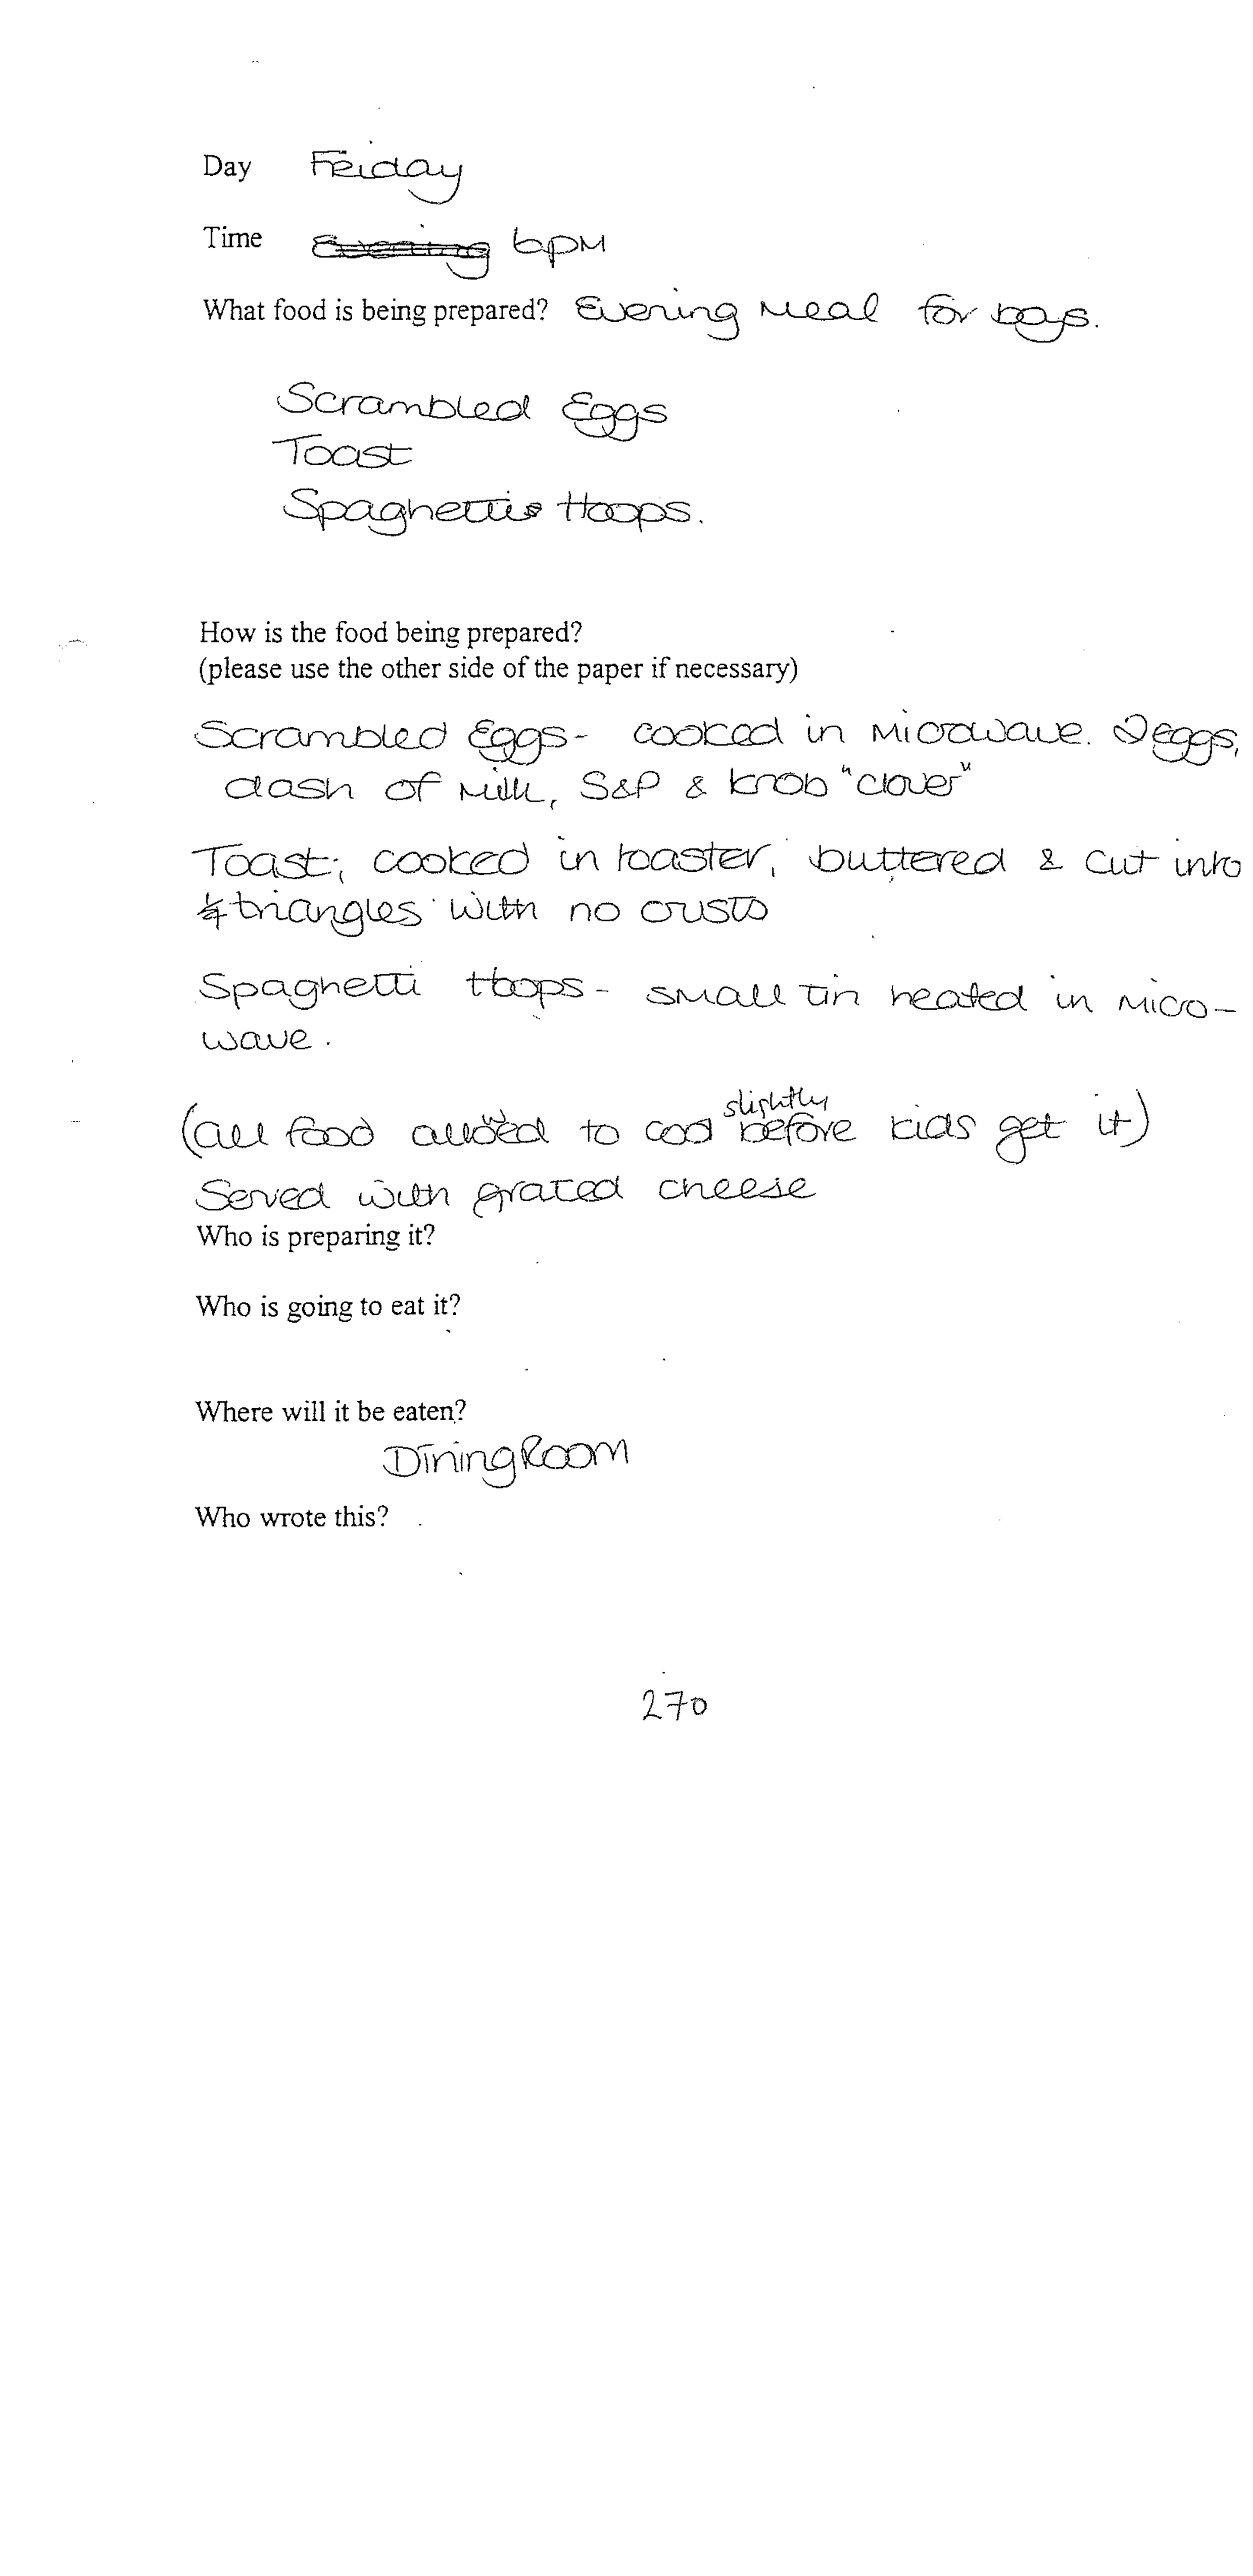 Day Friday
Time Evening 6pm
What food is being prepared? Evening meal for boys.
Scrambled Eggs
Toast
Spaghetti Hoops.
How is the food being prepared?
(please use the other side of the paper if necessary)
Scrambled Eggs - cooked in microwave. 2 eggs,
dash of milk, S&P & knob "clover"
Toast; cooked in toaster, buttered & cut into
4 triangles with no crusts
Spaghetti Hoops - small tin heated in micro-
wave.
(all food allowed to cool slightly before kids get it)
Served with grated cheese
Who is preparing it?
Who is going to eat it?
Where will it be eaten?
Dining Room
Who wrote this?
270